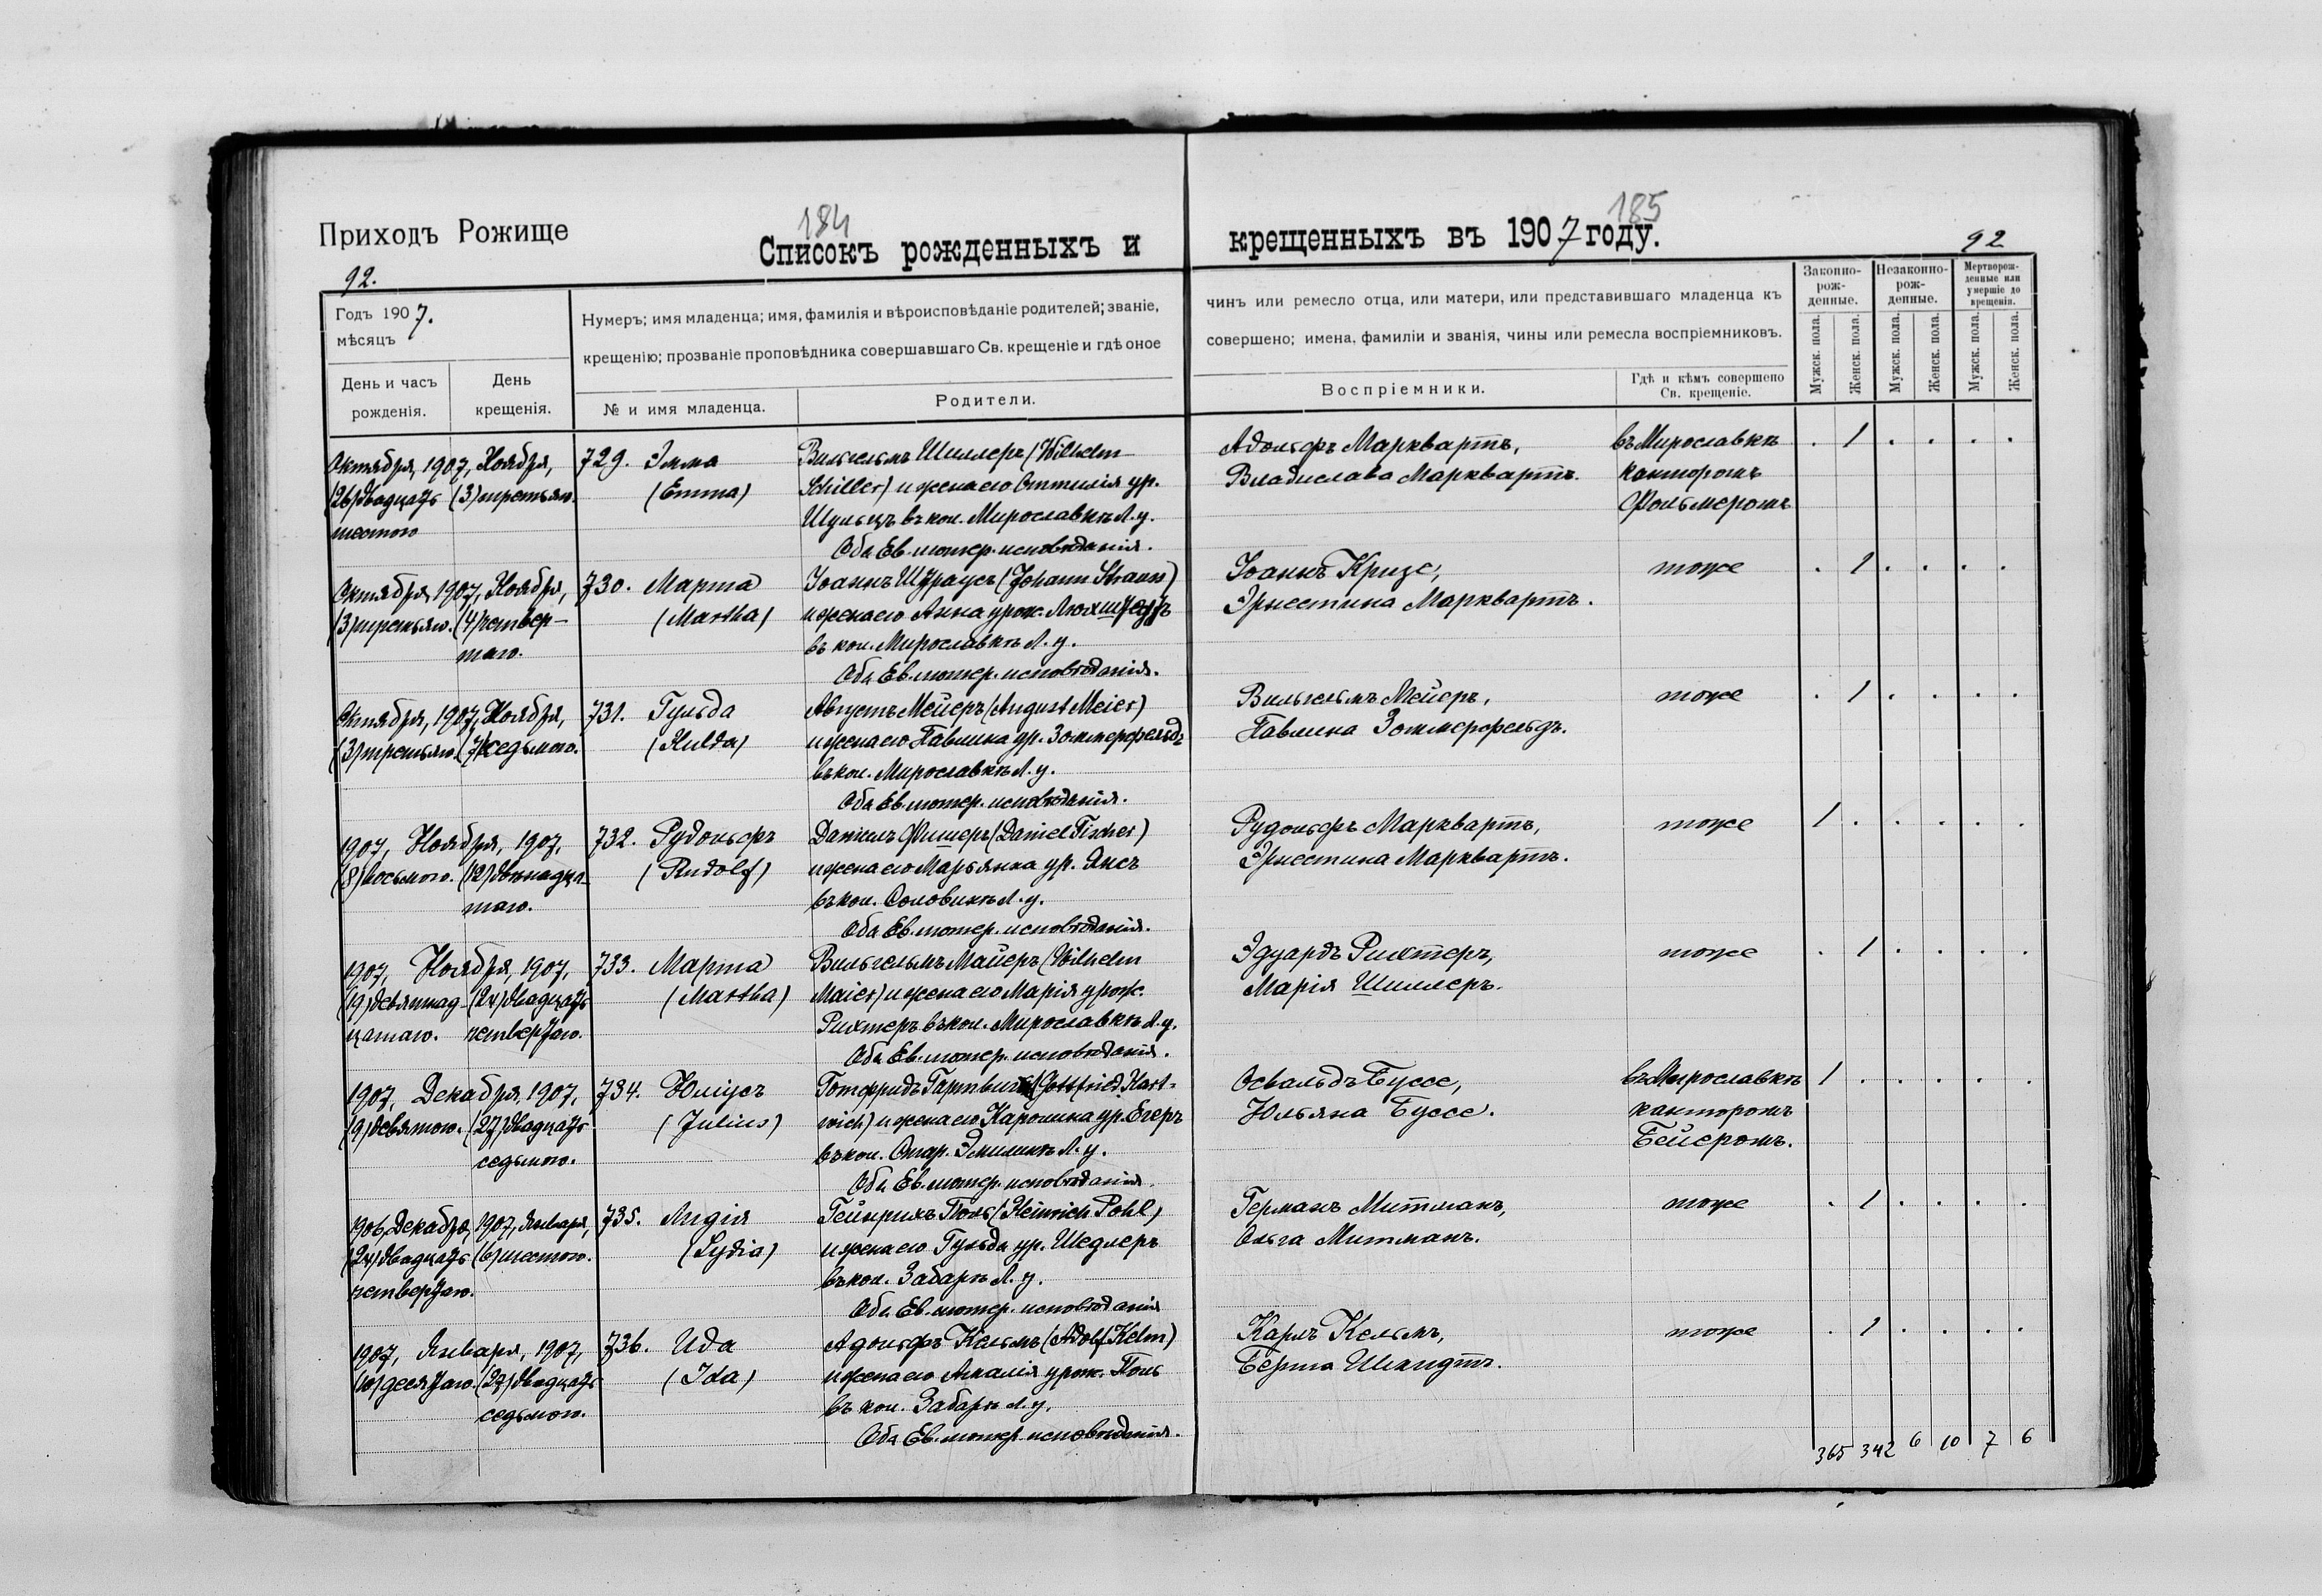 184
185
Приходъ Рожище
Списокъ рожденныхъ и крещенныхъ въ 1907 году.
92.
92
Годъ 1907.
мѣсяцъ
День и часъ рожденія.
День крещенія.
Нумеръ; имя младенца; имя, фамилія и вѣроисповѣданіе родителей; званіе,
крещенію; прозваніе проповѣдника совершавшаго Св. крещеніе и гдѣ оное
№ и имя младенца.
Родители.
чинъ или ремесло отца, или матери, или представившаго младенца къ
совершено; имена, фамиліи и званія, чины или ремесла воспріемниковъ.
Воспріемники.
Гдѣ и кѣмъ совершено
Св. крещеніе.
Законно-
рож-
денные.
Незаконно-
рож-
денные.
Мертворож-
денные или
умершіе до
крещенія.
Мужск. пола.
Женск. пола.
Мужск. пола.
Женск. пола.
Мужск. пола.
Женск. пола.
Октября, 1907, Ноября,
(26) двадцать (3) третьяго.
шестого
729. Эмма
(Emma)
Вильгельмъ Шиллеръ (Wilhelm
Schiller) и жена его Оттилія ур.
Шульцъ въ кол. Мирославкѣ Л. у.
Оба Ев. лютер. исповѣданія.
Адольфъ Марквартъ,
Владислава Марквартъ.
въ Мирославкѣ
канторомъ
Фольмеромъ
. 1 . . . .
Октября, 1907, Ноября,
(3) третьяго. (4) четвер-
таго.
730. Марта
(Martha)
Іоаннъ Штраусъ (Johann Strauss)
и жена его Анна урож. Люхштедтъ
въ кол. Мирославкѣ Л. у.
Оба Ев. лютер. исповѣданія.
Іоаннъ Кризе,
Эрнестина Марквартъ.
тоже
. 1 . . . .
Октября, 1907, Ноября,
(3) третьяго. (7) седьмого.
731. Гульда
(Hulda)
Августъ Мейеръ (August Meier)
и жена его Павлина ур. Зоммерфельдъ
въ кол. Мирославкѣ Л. у.
Оба Ев. лютер. исповѣданія.
Вильгельмъ Мейеръ,
Павлина Зоммерфельдъ.
тоже
. 1 . . . .
1907, Ноября, 1907,
(8) восьмого. (12) двѣнадца-
таго.
732. Рудольфъ
(Rudolf)
Даніилъ Фишеръ (Daniel Fischer)
и жена его Марьянка ур. Янсъ
въ кол. Соловинѣ Л. у.
Оба Ев. лютер. исповѣданія.
Рудольфъ Марквартъ,
Эрнестина Марквартъ.
тоже
1 . . . . .
1907, Ноября, 1907,
(19) девятнад- (24) двадцать
цатаго. четвертаго.
733. Марта
(Martha)
Вильгельмъ Майеръ (Wilhelm
Maier) и жена его Марія урож.
Рихтеръ въ кол. Мирославкѣ Л. у.
Оба Ев. лютер. исповѣданія.
Эдуардъ Рихтеръ,
Марія Шиллеръ.
тоже
. 1 . . . .
1907, Декабря, 1907,
(9) девятого. (27) двадцать
седьмого.
734. Юліусъ
(Julius)
Готфридъ Гартвигъ (Gottfried Hart-
wich) и жена его Каролина ур. Егеръ
въ кол. Стар. Эмилинѣ Л. у.
Оба Ев. лютер. исповѣданія.
Освальдъ Буссе,
Юльяна Буссе.
въ Мирославкѣ
канторомъ
Бейеромъ.
1 . . . . .
1906, Декабря, 1907, Января,
(24) двадцать (6) шестого.
четвертаго.
735. Лидія
(Lydia)
Гейнрихъ Поль (Heinrich Pohl)
и жена его Гульда ур. Шедлеръ
въ кол. Забарѣ Л. у.
Оба Ев. лютер. исповѣданія
Германъ Митманъ,
Ольга Митманъ.
тоже
. 1 . . . .
1907, Января, 1907,
(10) десятаго. (27) двадцать
седьмого.
736. Ида
(Ida)
Адольфъ Кельмъ (Adolf Kelm)
и жена его Амалія урож. Поль
въ кол. Забарѣ Л. у.
Оба Ев. лютер. исповѣданія.
Карлъ Кельмъ,
Берта Шмидтъ.
тоже
. 1 . . . .
365 342 6 10 7 6